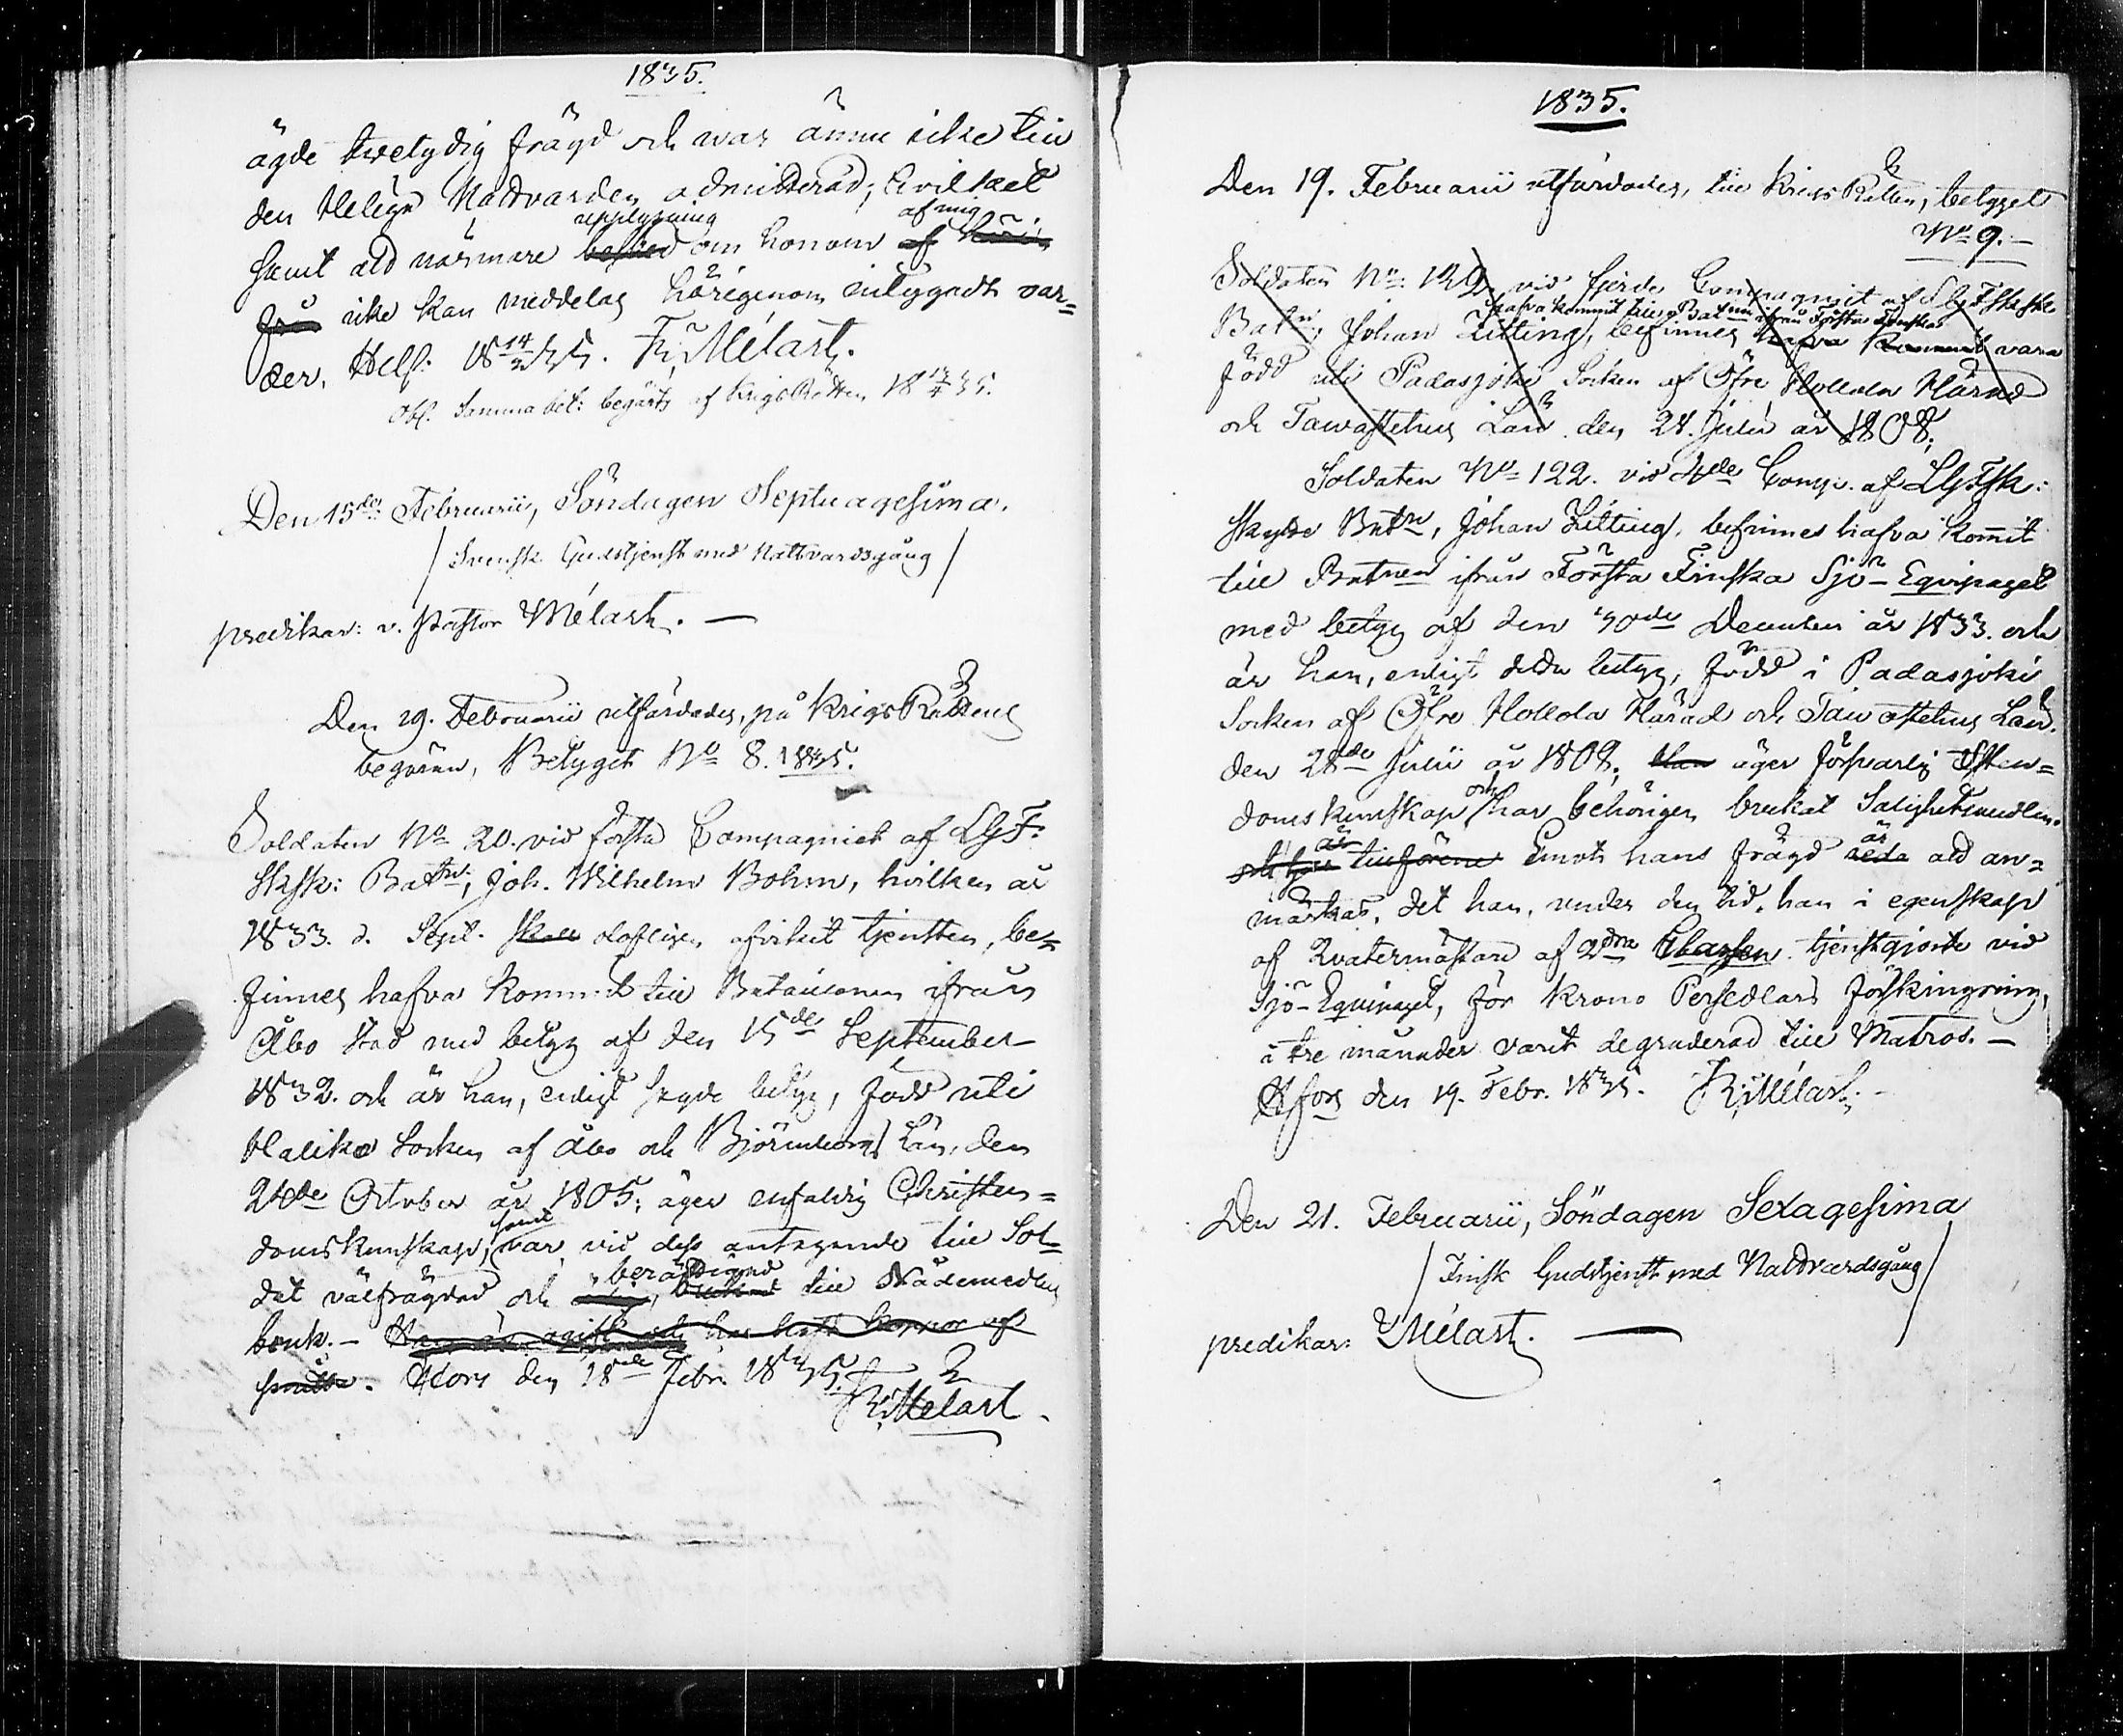 1835.
ägde tvetydig frägd och war ännu icke till
den Helige Nattvarden admitterad; hvilket
upplysning af mig
samt att närmare besked om honom af härif
från icke kan meddelas härigenom intygadt var=
der. Helsf: 18 14/2 35. Fr; Mélart.
Obs. Samma bet: begärts af KrigsRätten 18 13/4 35.
Den 15de Februarii, Söndagen Septuagesima.
Svensk Gudstjenst med Nattvardsgång
predikar: v. Pastor Mélart. —
Den 19. Februarii utfärdades, på KrigsRättens
begäran, Betyget No 8. 1835.
Soldaten No 20. vid första Compagniet af LGF.
Sksk: Batn; Joh. Wilhelm Bohm, hvilken år
1833. d. Sept. skall olofligen afvikit tjensten, be=
finnes hafva kommit till Bataillonen ifrån
Åbo stad med betyg af den 15de September
1832. och är han, enligt sagde betyg, född uti
Haliko Socken af Åbo och Björneborgs Län, den
24de October år 1805; äger enfaldig Christen=
samt
domskunskap, var vid dess antagande till Sol=
berättigad
dat välfrägdad och till Nådemedlens
bruk. — Han är och har haft koppor af
. Hfors den 18de Febr. 1835.
Fr; Mélart.
1835.
Den 19. Februarii utfärdades, till KrigsRätten, betyget
No 9. —
Soldaten No: 122 vid fjerde Compagniet af LGFSksk
hafva kommit till Batnen ifrån Första Finska
Batn; Johan Zitting, befinnes hafva kommit vara
född uti Padasjoki Socken af Öfre Hollola Härad
och Tawastehus Län den 28. Julii år 1808;
Soldaten No 122. vid 4de Comp. af LGFSk:
Skytte Batn, Johan Zitting, befinnes hafva kommit
till Batnen ifrån Första Finska Sjö-Equipaget
med betyg af den 30de December år 1833. och
är han, enligt detta betyg, född i Padasjoki
Socken af Öfre Hollola Härad och Tawastehus Län.
den 28de Julii år 1808; Han äger försvarlig Xsten=
och
domskunskap har behörigen brukat Salighetsmedlen.
är är
tillförene Emot hans frägd att an=
märkas, det han, under den tid, han i egenskap
af Qvatermästare af 2dra Classen tjenstgjorde vid
Sjö-Equipaget, för Krono Persedlars förskingring,
i tre månader varit degraderad till Matros. —
Hfors den 19. Febr. 1835. Fr; Mélart. -
Den 21. Februarii, Söndagen Sexagesima
Finsk Gudstjenst med Nattvardsgång
predikar: Mélart. —